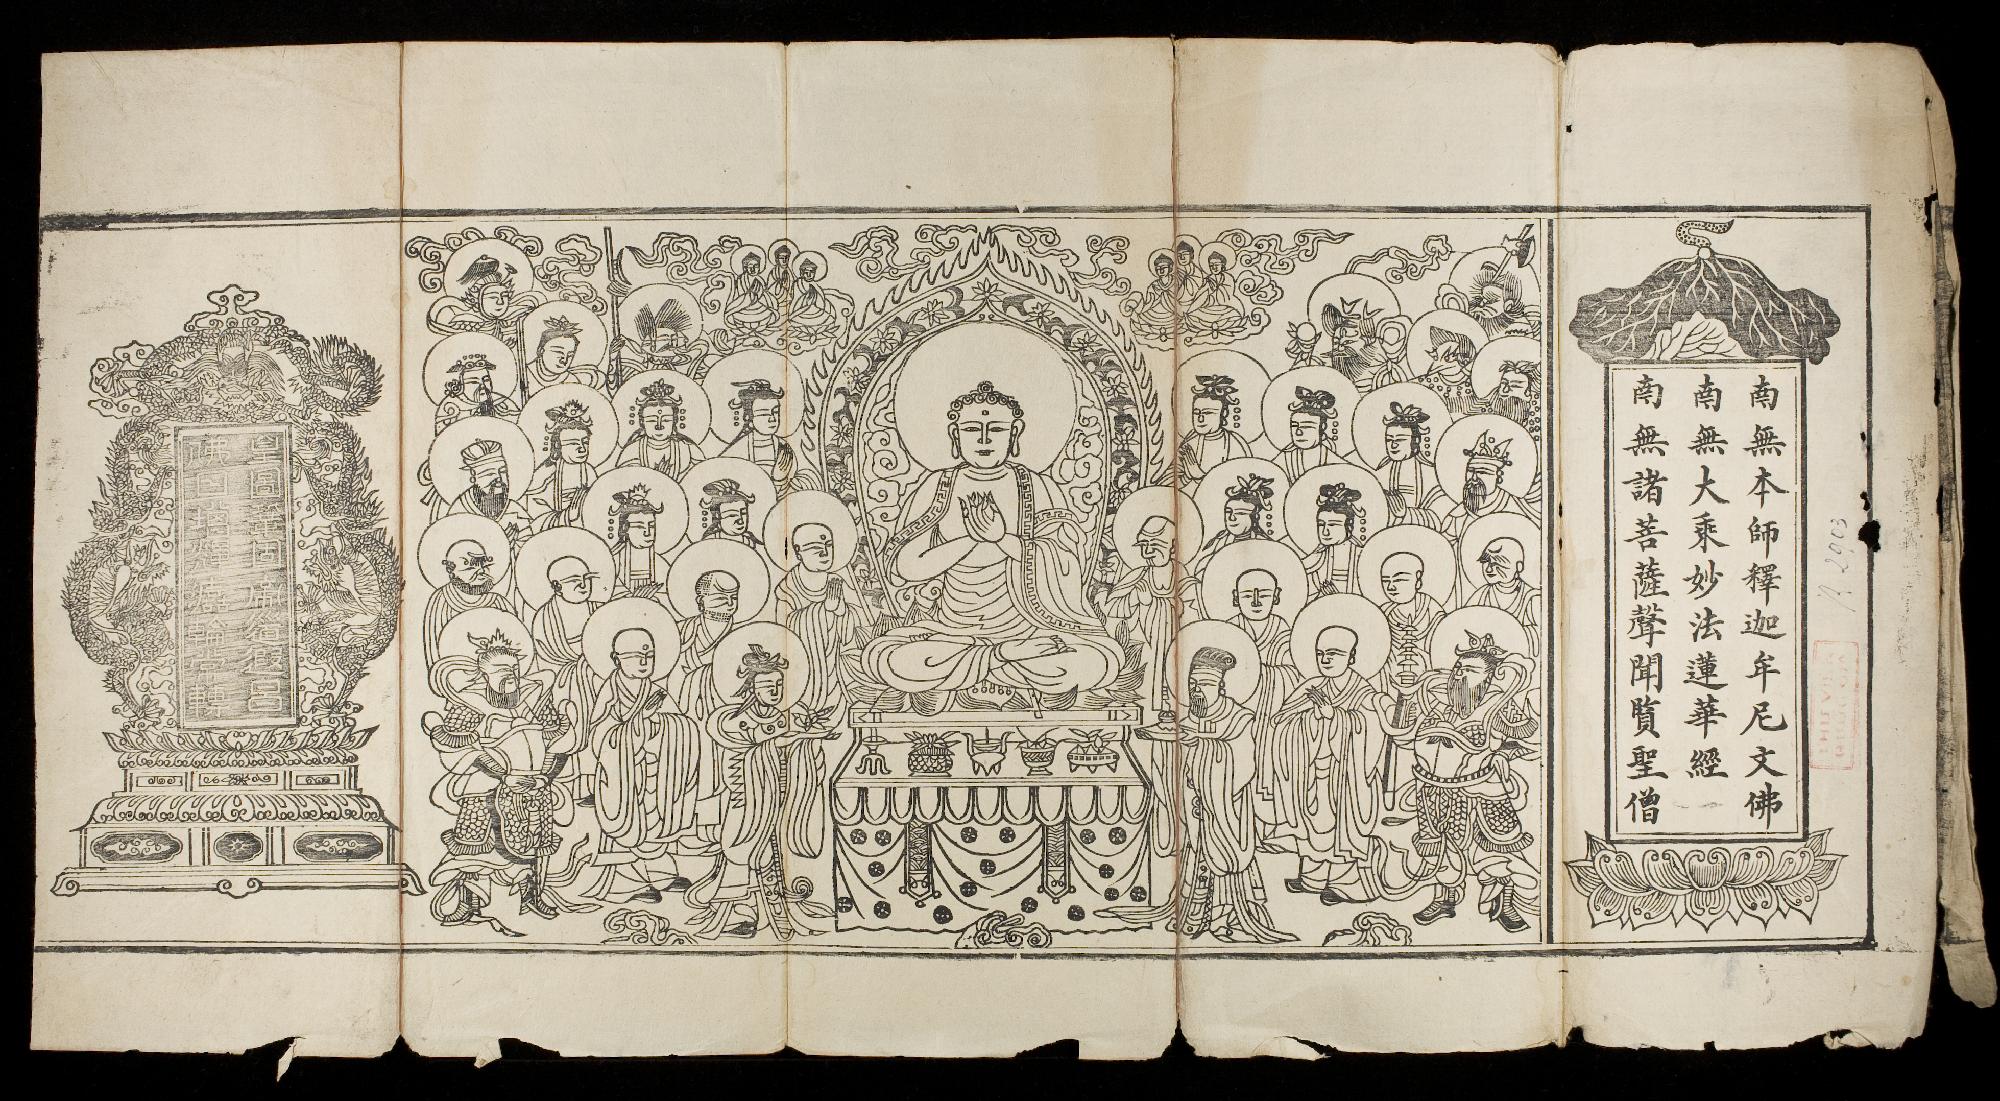 南無本師釋迦牟尼文佛
南無大乘妙法蓮華經
南無諸菩薩聲聞賢聖僧
皇圖鞏固帝道遐昌
佛日增輝灋輪常轉